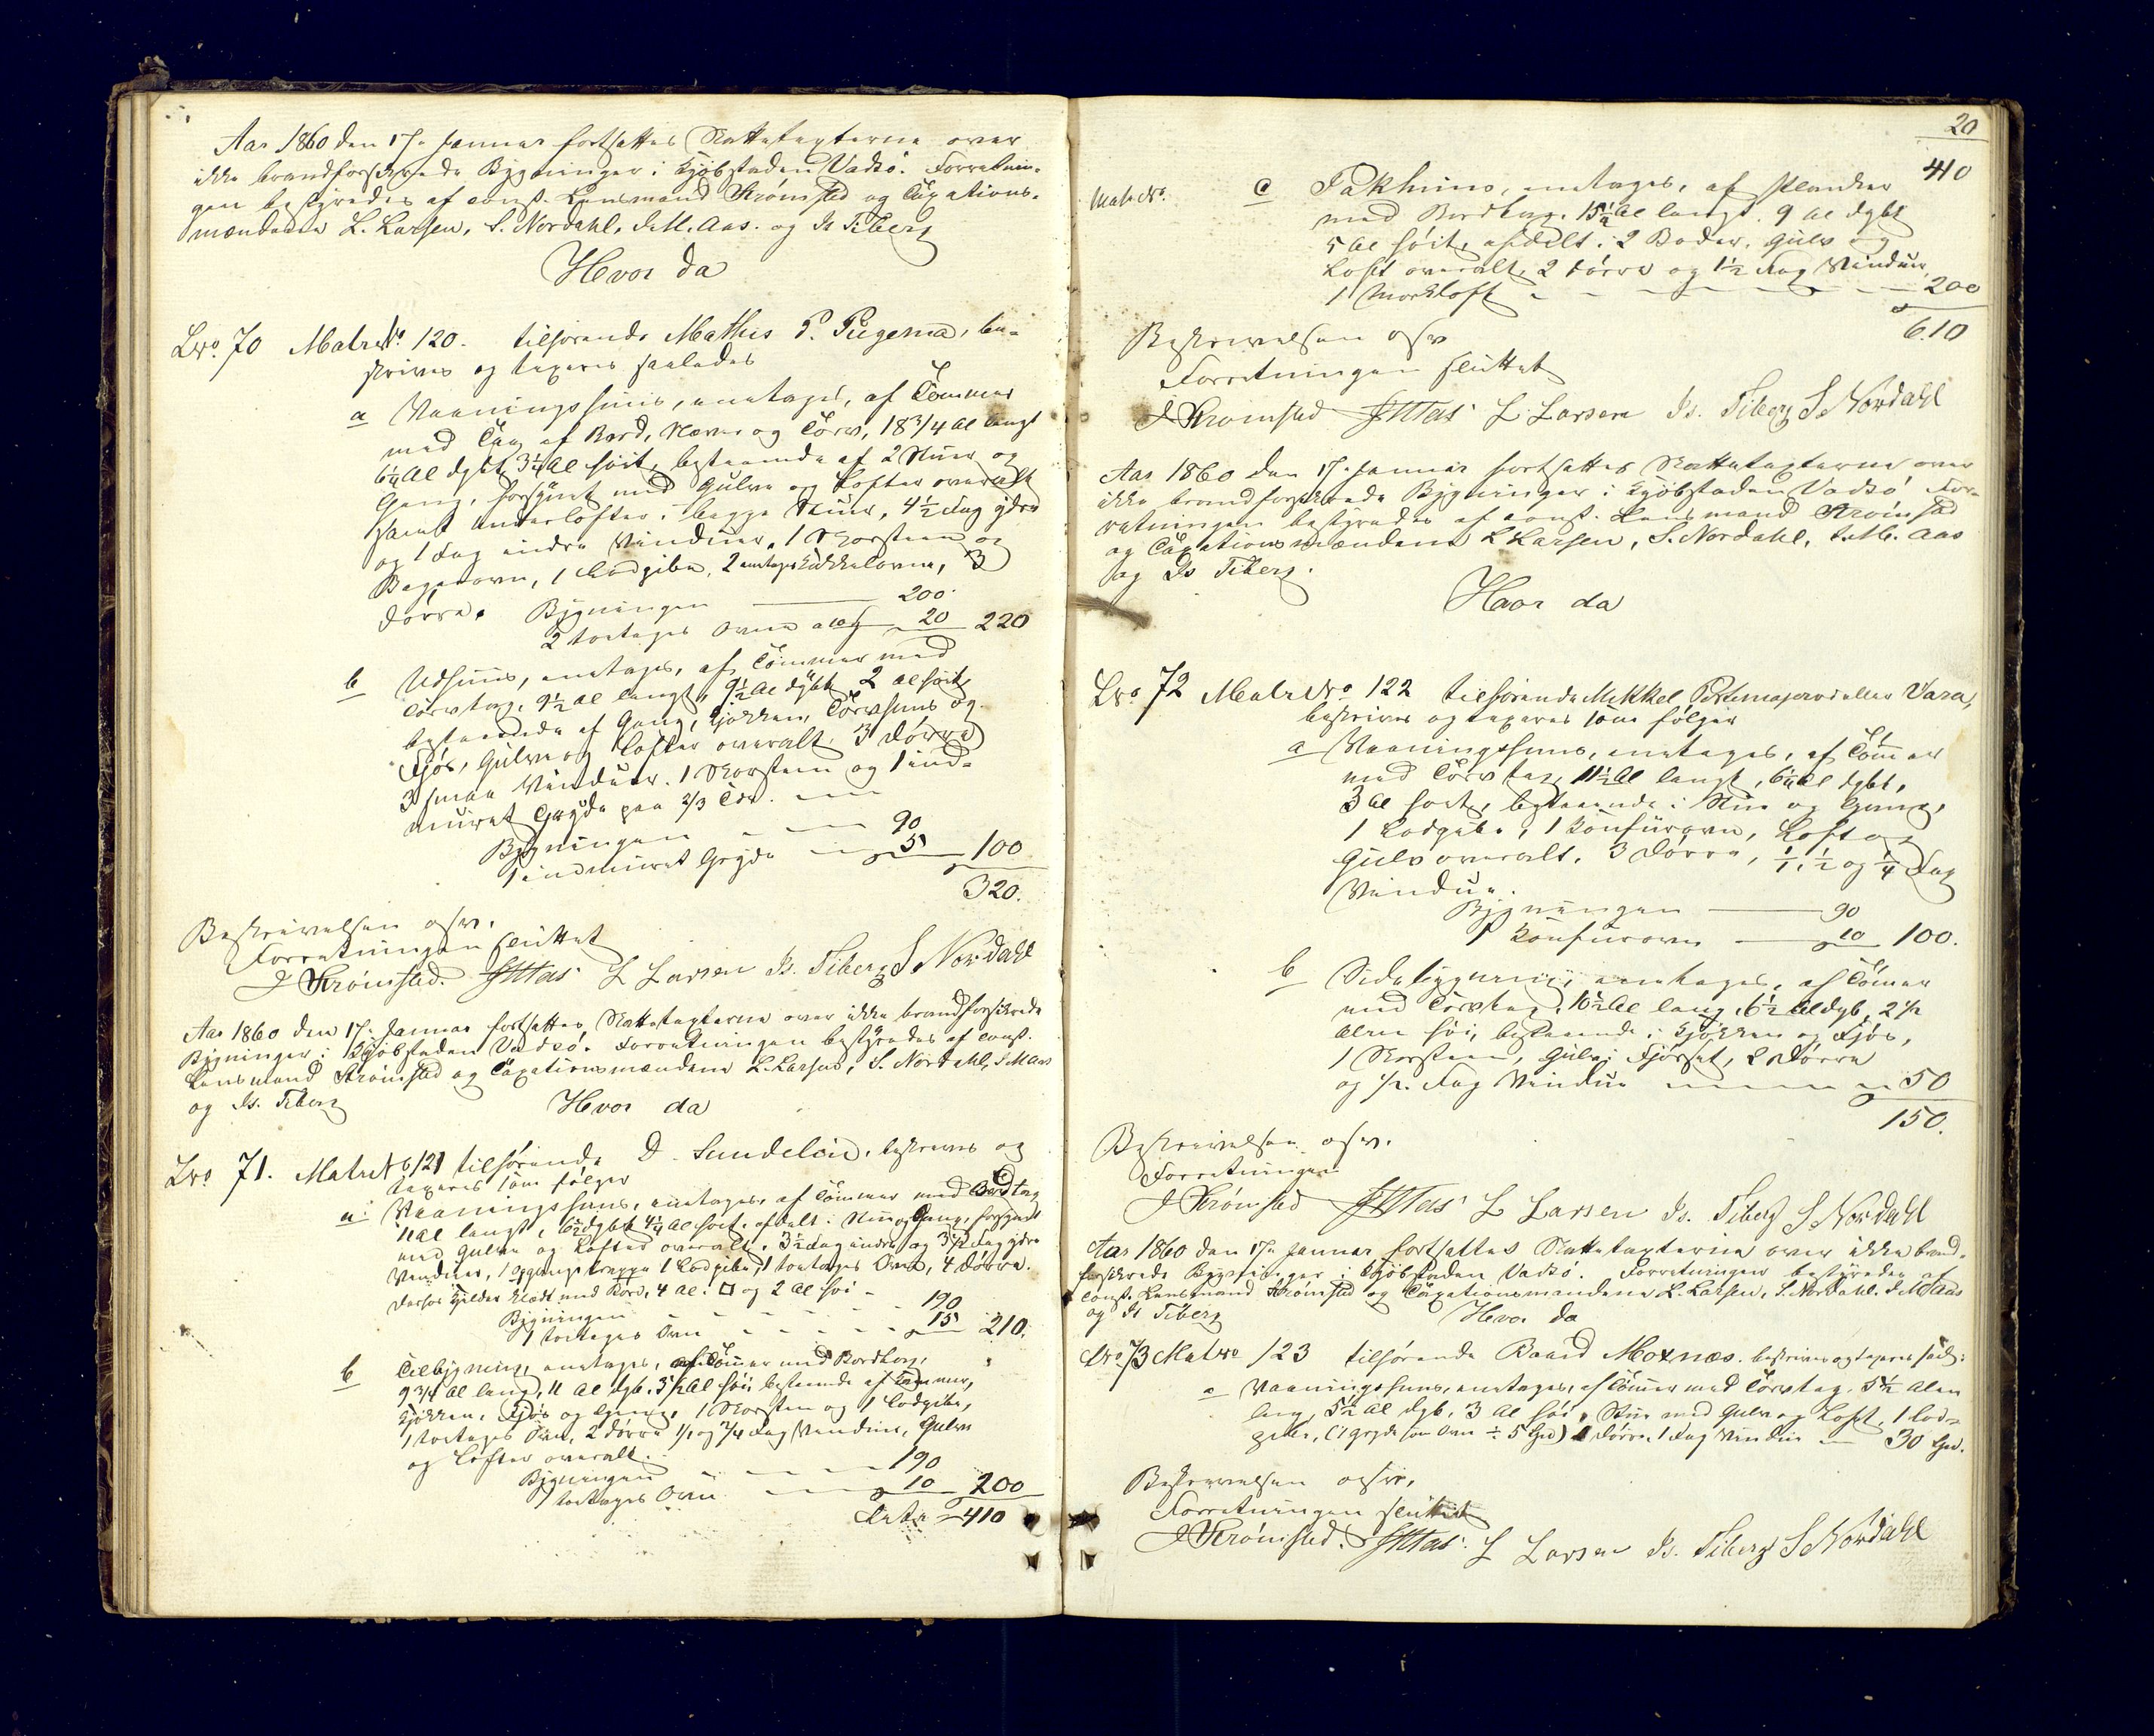 Aar 1860 den 17de Januar fortsattes Skattetaxterne over
ikke brandforsikrede Bygninger i Kjøbstaden Vadsø. Forretnin-
gen bestyredes af const. Lensmand Strømsted og Taxations-
mændene L. Larsen, S. Nordahl, J. M. Aas. og Is Fiberg
Hvor da
Lno. 70 Matr No. 120. tilhørende Mathis P. Piegema, be-
skrives og taxeres saaledes
a Vaaningshuus, eenetages, af Tømmer
med Tag af Bord, Næver og Törv, 18 3/4 Al langt
6 1/4 Al dybt, 3 1/4 Al höit, bestaaende af 2 Stuer og
Gang, forsynet med Gulve og Lofter overalt
samt Underlofter i begge Stuer, 4 1/2 Fag ydre
og 1 Fag indre Vinduer, 1 Skorsteen og
Bagerovn, 1 Lodpibe, 2 Kakkelovne, 3
dørre. Bygningen 200.
2 toetages Ovne 20 220
b Udhuus, eenetages, af Tømmer med
Törvtag, 9 1/2 al langt, 9 1/2 Al dybt 2 al höit,
bestaaende af Gang, Kjøkken, Törvhuus og
Fjøs, Gulve og Lofter overalt. 3 dørre
3 smaa Vinduer. 1 Skorsteen og 1 ind-
muret Gryde paa 2/3 Tde.
Bygningen 90
1 indmuret Gryde 5 100
320.
Beskrivelsen osv.
Forretningen sluttet
J Strømsted. JMAas L Larsen Is. Fiberg S Nordahl
Aar 1860 den 17de Januar fortsattes Skattetaxterne over ikke brandforsikrede
Bygninger i Kjøbstaden Vadsø. Forretningen bestyredes af const.
Lensmand Strømsted og Taxationsmændene L. Larsen, S. Nordahl, J M Aas
og Is. Fiberg
Hvor da
Lno. 71. Matr No 121 tilhørende D. Sundelin, beskrives og
taxeres som følger
a. Vaaningshuus, eenetages, af Tømmer med Bordtag
11 Al langt, 6 1/2 dybt 4 1/4 Al höit, afdelt i Stue og Gang, forsynet
med Gulve og Lofter overalt. 3 1/2 Fag indre og 3 1/2 Fag ydre
Vinduer, 1 Opgangstrappe 1 Lodpibe, 1 toetages Ovn, 4 dørre.
klædt med Bord, 4 Al. □ og 2 Al höi
Bygningen 190
1 toetages Ovn 15 210.
b Tilbygning, eenetages, af Tømmer med Bordtag,
9 3/4 Al lang, 11 Al dyb, 3 1/2 Al höi, bestaaende af Kammer,
Kjøkken, Fjøs og Gang, 1 Skorsten og 1 Lodpibe,
1 toetages Ovn, 2 dørre 1/1 og 3/4 Fag Vindue, Gulve
og Lofter overalt.
Bygningen 190
1 toetages Ovn 10 200
410
20
410
Matr No.
c Pakhuus, eenetages, af Planker
med Bordtag. 15 1/2 Al langt. 9 Al dybt
5 Al höit, afdelt i 2 Boder. Gulv og
Loft overalt, 2 dørre og 1 1/2 Fag Vindue,
1 Mørkloft 200
610
Beskrivelsen osv
Forretningen sluttet
J Strømsted JMAas L Larsen Is. Fiberg S Nordahl
Aar 1860 den 17de Januar fortsattes Skattetaxterne over
ikke brandforsikrede Bygninger i Kjøbstaden Vadsø For-
retningen bestyredes af const. Lensmand Strømsted
og Taxationsmændene L Larsen, S. Nordahl, J. M. Aas
og Is Fiberg.
Hvor da
Lno 72 Matr No. 122 tilhørende Mikkel eller Vara,
beskrives og taxeres som følger
a Vaaningshuus, eenetages, af Tömmer
med Törvtag, 11 1/2 Al langt, 6 1/4 Al dybt,
3 Al höit, bestaaende i Stue og Gang,
1 Lodpibe, 1 Komfurovn, Loft og
Gulv overalt. 3 dørre, 1/1, 1/2 og 1/4 Fag
Vindue.
Bygningen 90
1 Komfurovn 10 100.
b Sidebygning, eenetages, af Tömmer
med Törvtag. 10 1/2 Al lang, 6 1/2 Al dyb, 2 1/2
Alen höi, bestaaende i Kjøkken og Fjøs,
1 Skorsteen, Gulv i Fjöset, 2 dørre
og 1/2 Fag Vindue 50
150.
Beskrivelsen osv.
Forretningen
J Strømsted JMAas L Larsen Is. Fiberg S Nordahl
Aar 1860 den 17de Januar fortsattes Skattetaxterne over ikke brand-
forsikrede Bygninger i Kjøbstaden Vadsø. Forretningen bestyredes af
const. Lensmand Strømsted og Taxationsmændene L. Larsen, S. Nordahl. J. M Aas
og Is Fiberg
Hvor da
Lno 73 Matr No 123 tilhørende Baard Moxnæs. beskrives og taxeres
a Vaaningshuus, eenetages, af Tömmer med Törvtag. 5 1/2 Alen
lang, 5 1/2 Al dyb, 3 Al höi, Stue med Gulv og Loft, 1 Lod-
pibe, (1 Gryde som Ovn ÷ 5 Spd) 1 dørre, 1 Fag Vindue 30 Spd.
Beskrivelsen osv.
Forretningen sluttet
J Strømsted. JMAas. L Larsen Is. Fiberg S Nordahl